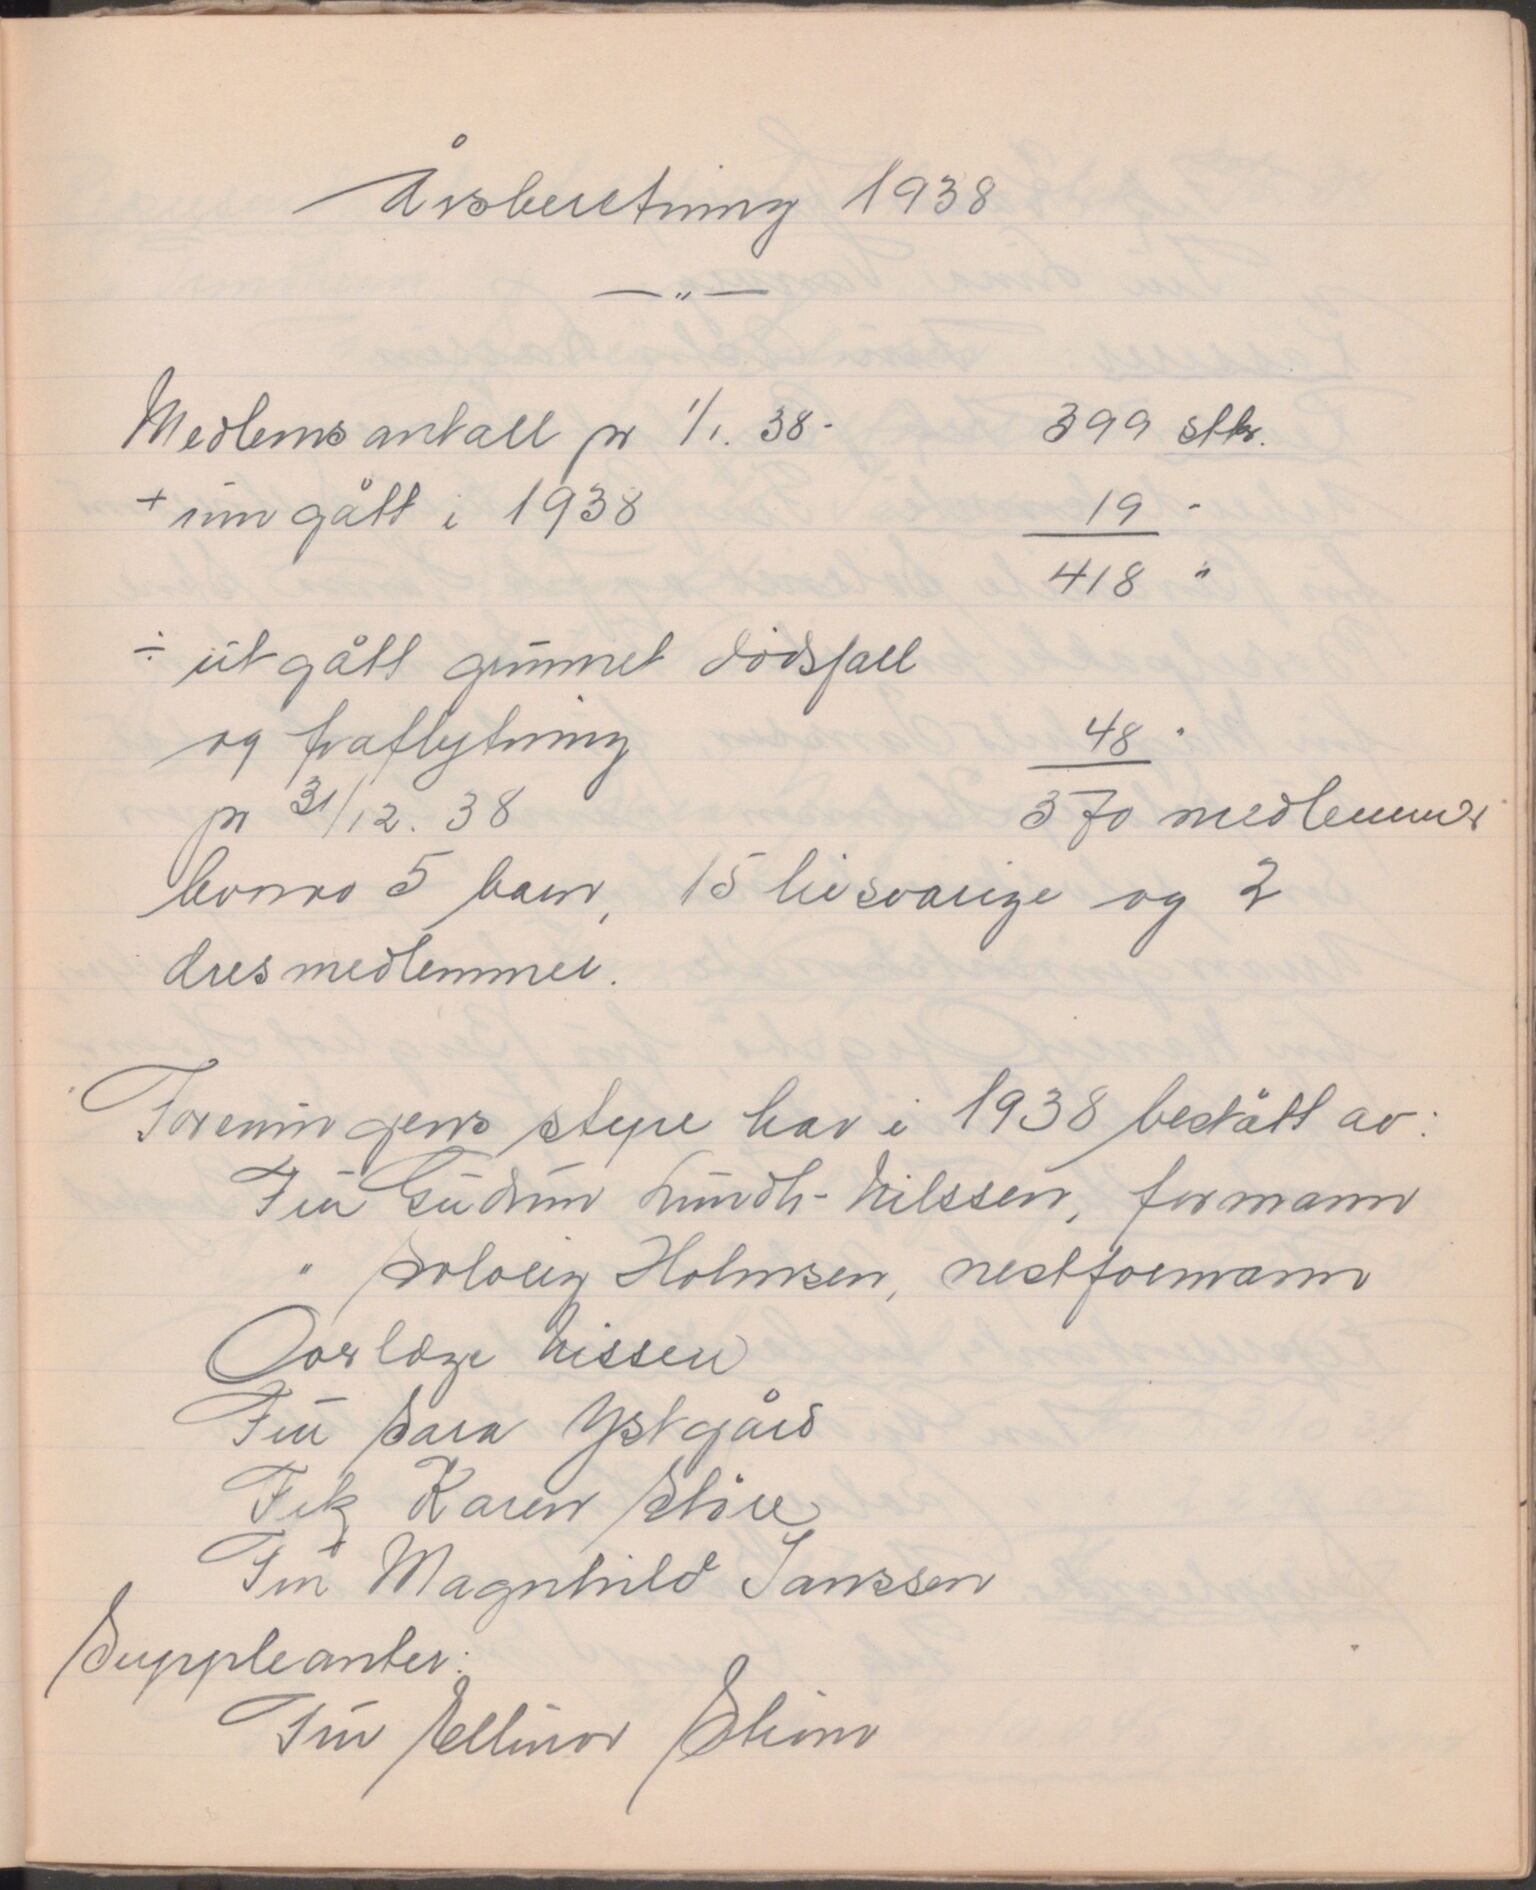 Årsberetning 1938
— " —
Medlemsantall pr 1/1. 38 - 399 stk.
+ inngått i 1938 19 -
418 "
÷ utgått grunnet dödsfall
og fraflytning 48 "
pr 31/12. 38 370 medlemmer
hvorav 5 barn, 15 livsvarige og 2
æresmedlemmer.
Foreningens styre har i 1938 bestått av:
Fru Gudrun Lundh-Nilssen, formann
" Solveig Holmsen, nestformann
Overlæge Nissen
Fru Sara Ystgård
Frk Karen Störe
Fru Magnhild Janssen
Suppleanter:
Fru Ellinor